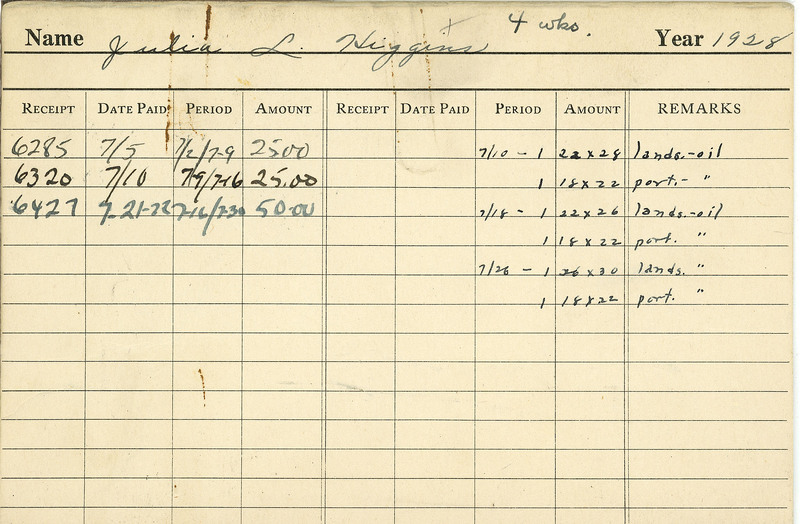 Name Julia L. Higgins 4 wks. Year 1928
RECEIPT DATE PAID PERIOD AMOUNT RECEIPT DATE PAID PERIOD AMOUNT REMARKS
6285 7/5 7/2/7-9 25 00 7/10 - 1 22 x 28 lands.-oil
6320 7/10 7/9/7-16 25.00 1 18 x 22 port.- "
6427 7-21-22 7-16/7-30 50.00 7/18 - 1 22 x 26 lands.-oil
1 18 x 22 port. "
7/26 - 1 26 x 30 lands. "
1 18 x 22 port. "